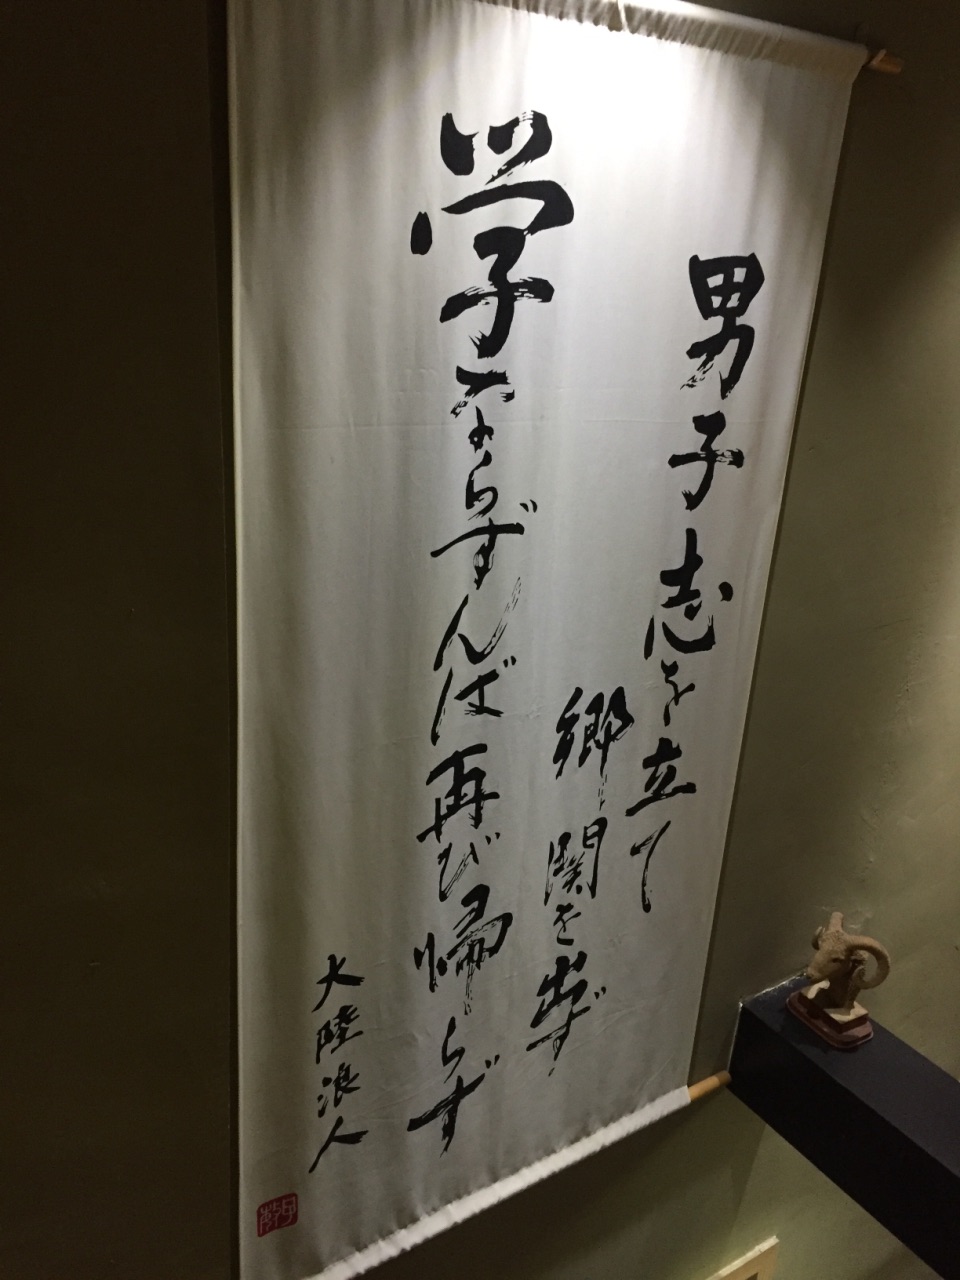 男子志を立て
郷関を出ず
学ならずんば再び帰らず
大陸浪人